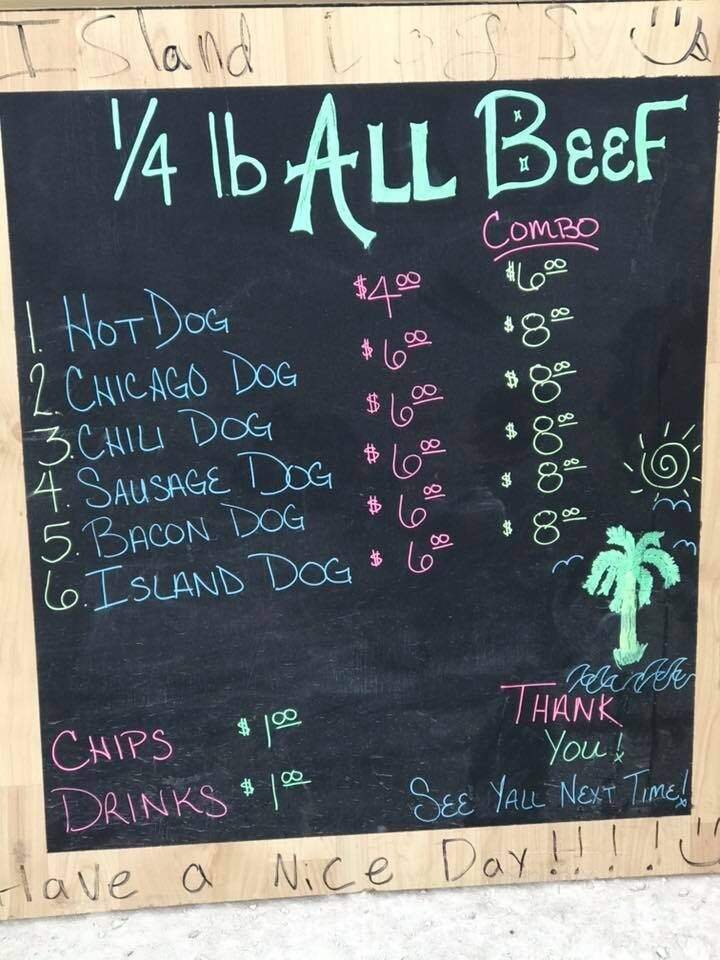 Island Dog's
1/4 lb ALL BEEF
COMBO
1. HOT DOG $4.00 $6.00
2. CHICAGO DOG $6.00 $8.00
3. CHILI DOG $6.00 $8.00
4. SAUSAGE DOG $6.00 $8.00
5. BACON DOG $6.00 $8.00
6. ISLAND DOG $6.00 $8.00
CHIPS $1.00
DRINKS $1.00
THANK
YOU!
SEE YALL NEXT TIME!
Have a Nice Day!!!!